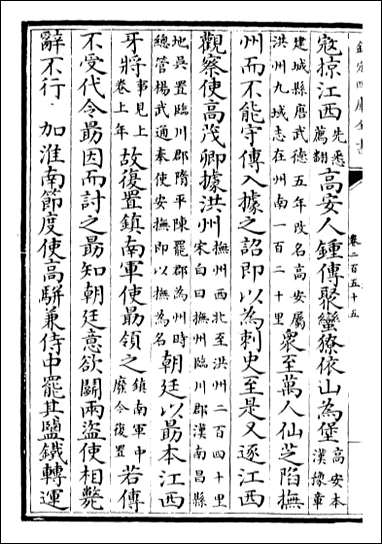 欽定四庫全書
卷二百五十五
寇掠江西先悉薦翻高安人鍾傳聚蠻獠依山為堡高安本漢豫章
建城縣唐武德五年改名高安屬洪州九城志在州南一百二十里衆至萬人仙芝陷撫
州而不能守傳入據之詔即以為刺史至是又逐江西
觀察使高茂卿據洪州撫州西北至洪州二百四十里宋白曰撫州臨川郡漢南昌縣
地吳置臨川郡隋平陳罷郡為州時總管楊武通奉使安撫即以撫為名朝廷以勗本江西
牙將事見上卷上年故復置鎮南軍使勗領之鎮南軍中廢今復置若傳
不受代令勗因而討之勗知朝廷意欲鬭兩盜使相斃
辭不行 加淮南節度使高駢兼侍中罷其鹽鐵轉運